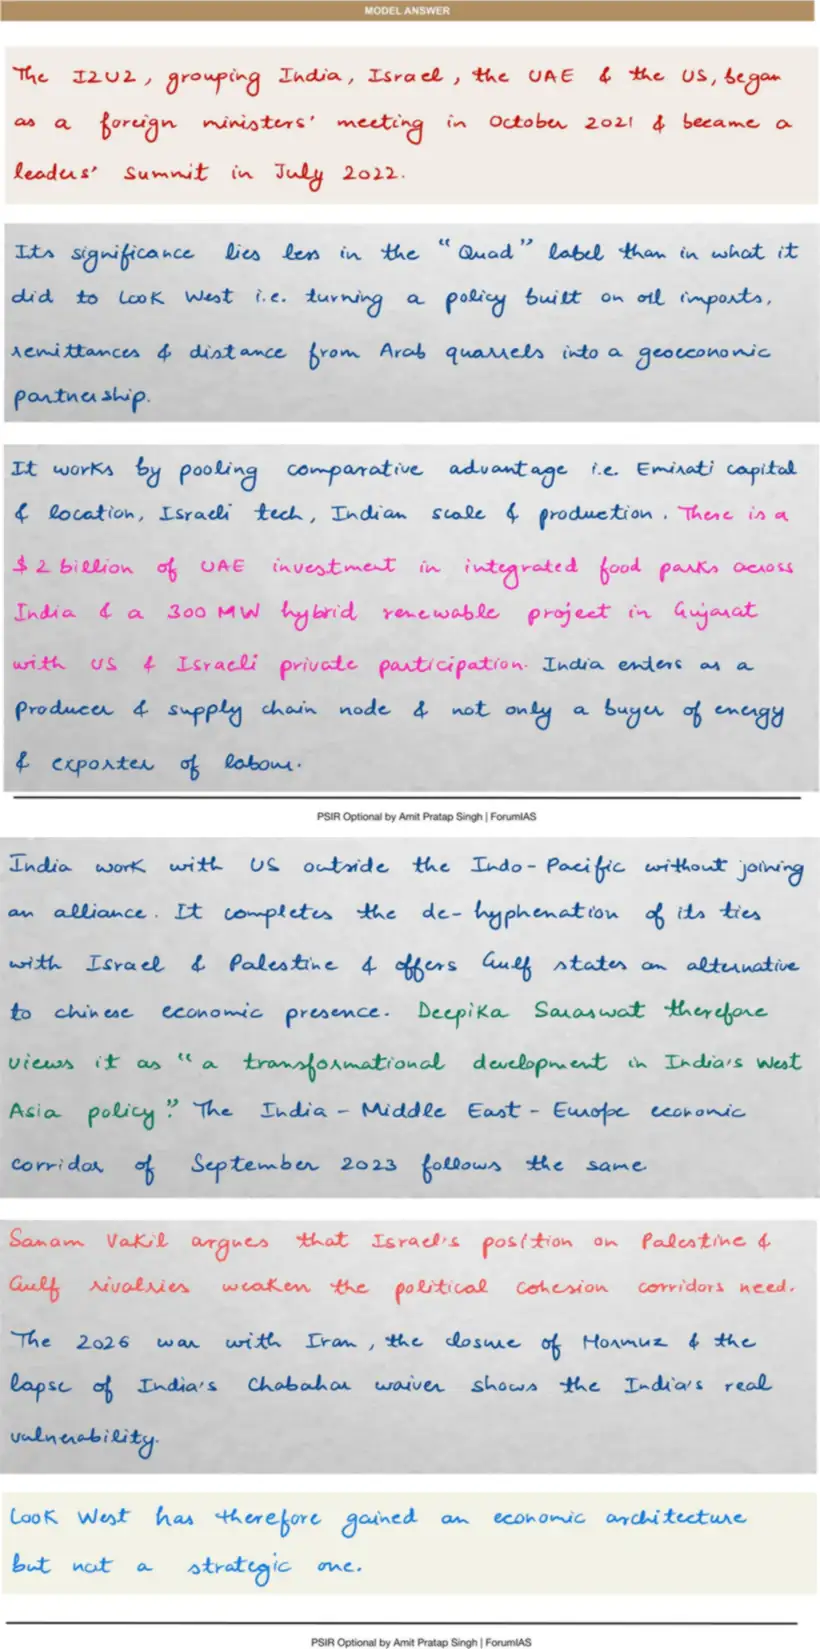 MODEL ANSWER
The I2U2, grouping India, Israel, the UAE & the US, began
as a foreign ministers' meeting in October 2021 & became a
leaders' summit in July 2022.
Its significance lies less in the "Quad" label than in what it
did to Look West i.e. turning a policy built on oil imports,
remittances & distance from Arab quarrels into a geoeconomic
partnership.
It works by pooling comparative advantage i.e. Emirati capital
& location, Israeli tech, Indian scale & production. There is a
$2 billion of UAE investment in integrated food parks across
India & a 300 MW hybrid renewable project in Gujarat
with US & Israeli private participation. India enters as a
producer & supply chain node & not only a buyer of energy
& exporter of labour.
PSIR Optional by Amit Pratap Singh | ForumIAS
India work with US outside the Indo-Pacific without joining
an alliance. It completes the de-hyphenation of its ties
with Israel & Palestine & offers Gulf states an alternative
to chinese economic presence. Deepika Saraswat therefore
views it as "a transformational development in India's West
Asia policy." The India-Middle East-Europe economic
corridor of September 2023 follows the same
Sanam Vakil argues that Israel's position on Palestine &
Gulf rivalries weaken the political cohesion corridors need.
The 2026 war with Iran, the closure of Hormuz & the
lapse of India's Chabahar waiver shows the India's real
vulnerability.
Look West has therefore gained an economic architecture
but not a strategic one.
PSIR Optional by Amit Pratap Singh | ForumIAS